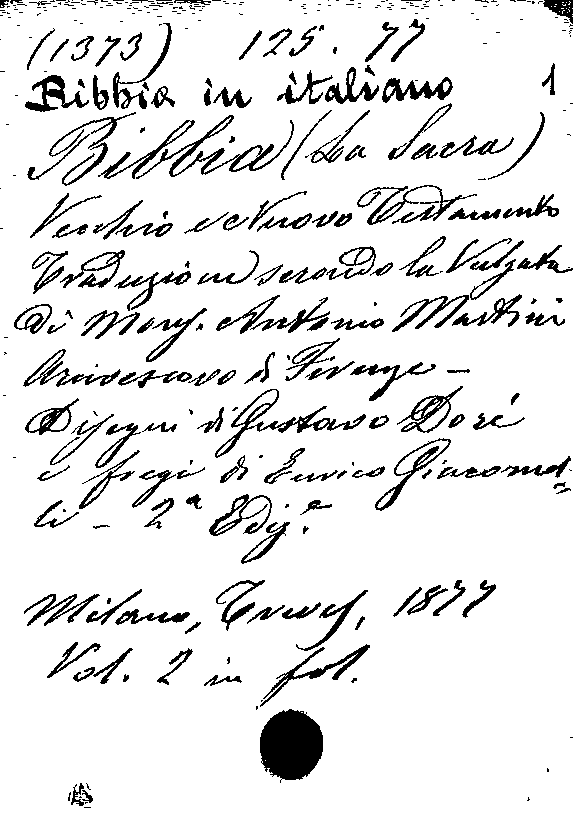 (1373) 125. 77
Bibbia in italiano 1
Bibbia (La Sacra)
Vecchio e Nuovo Testamento
Traduzione secondo la Vulgata
di Mons. Antonio Martini
Arcivescovo di Firenze -
Disegni di Gustavo Doré
e fregi di Enrico Giacomel=
li - 2ª Ediz.e
Milano, Treves, 1877
Vol. 2 in fol.